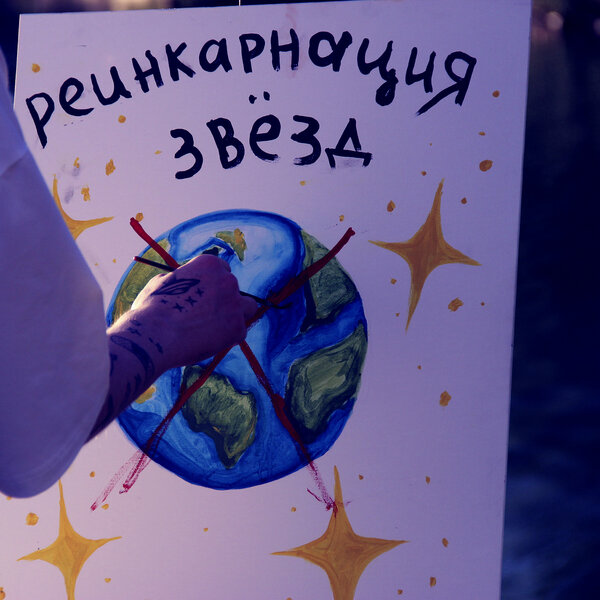 реинкарнация
звёзд